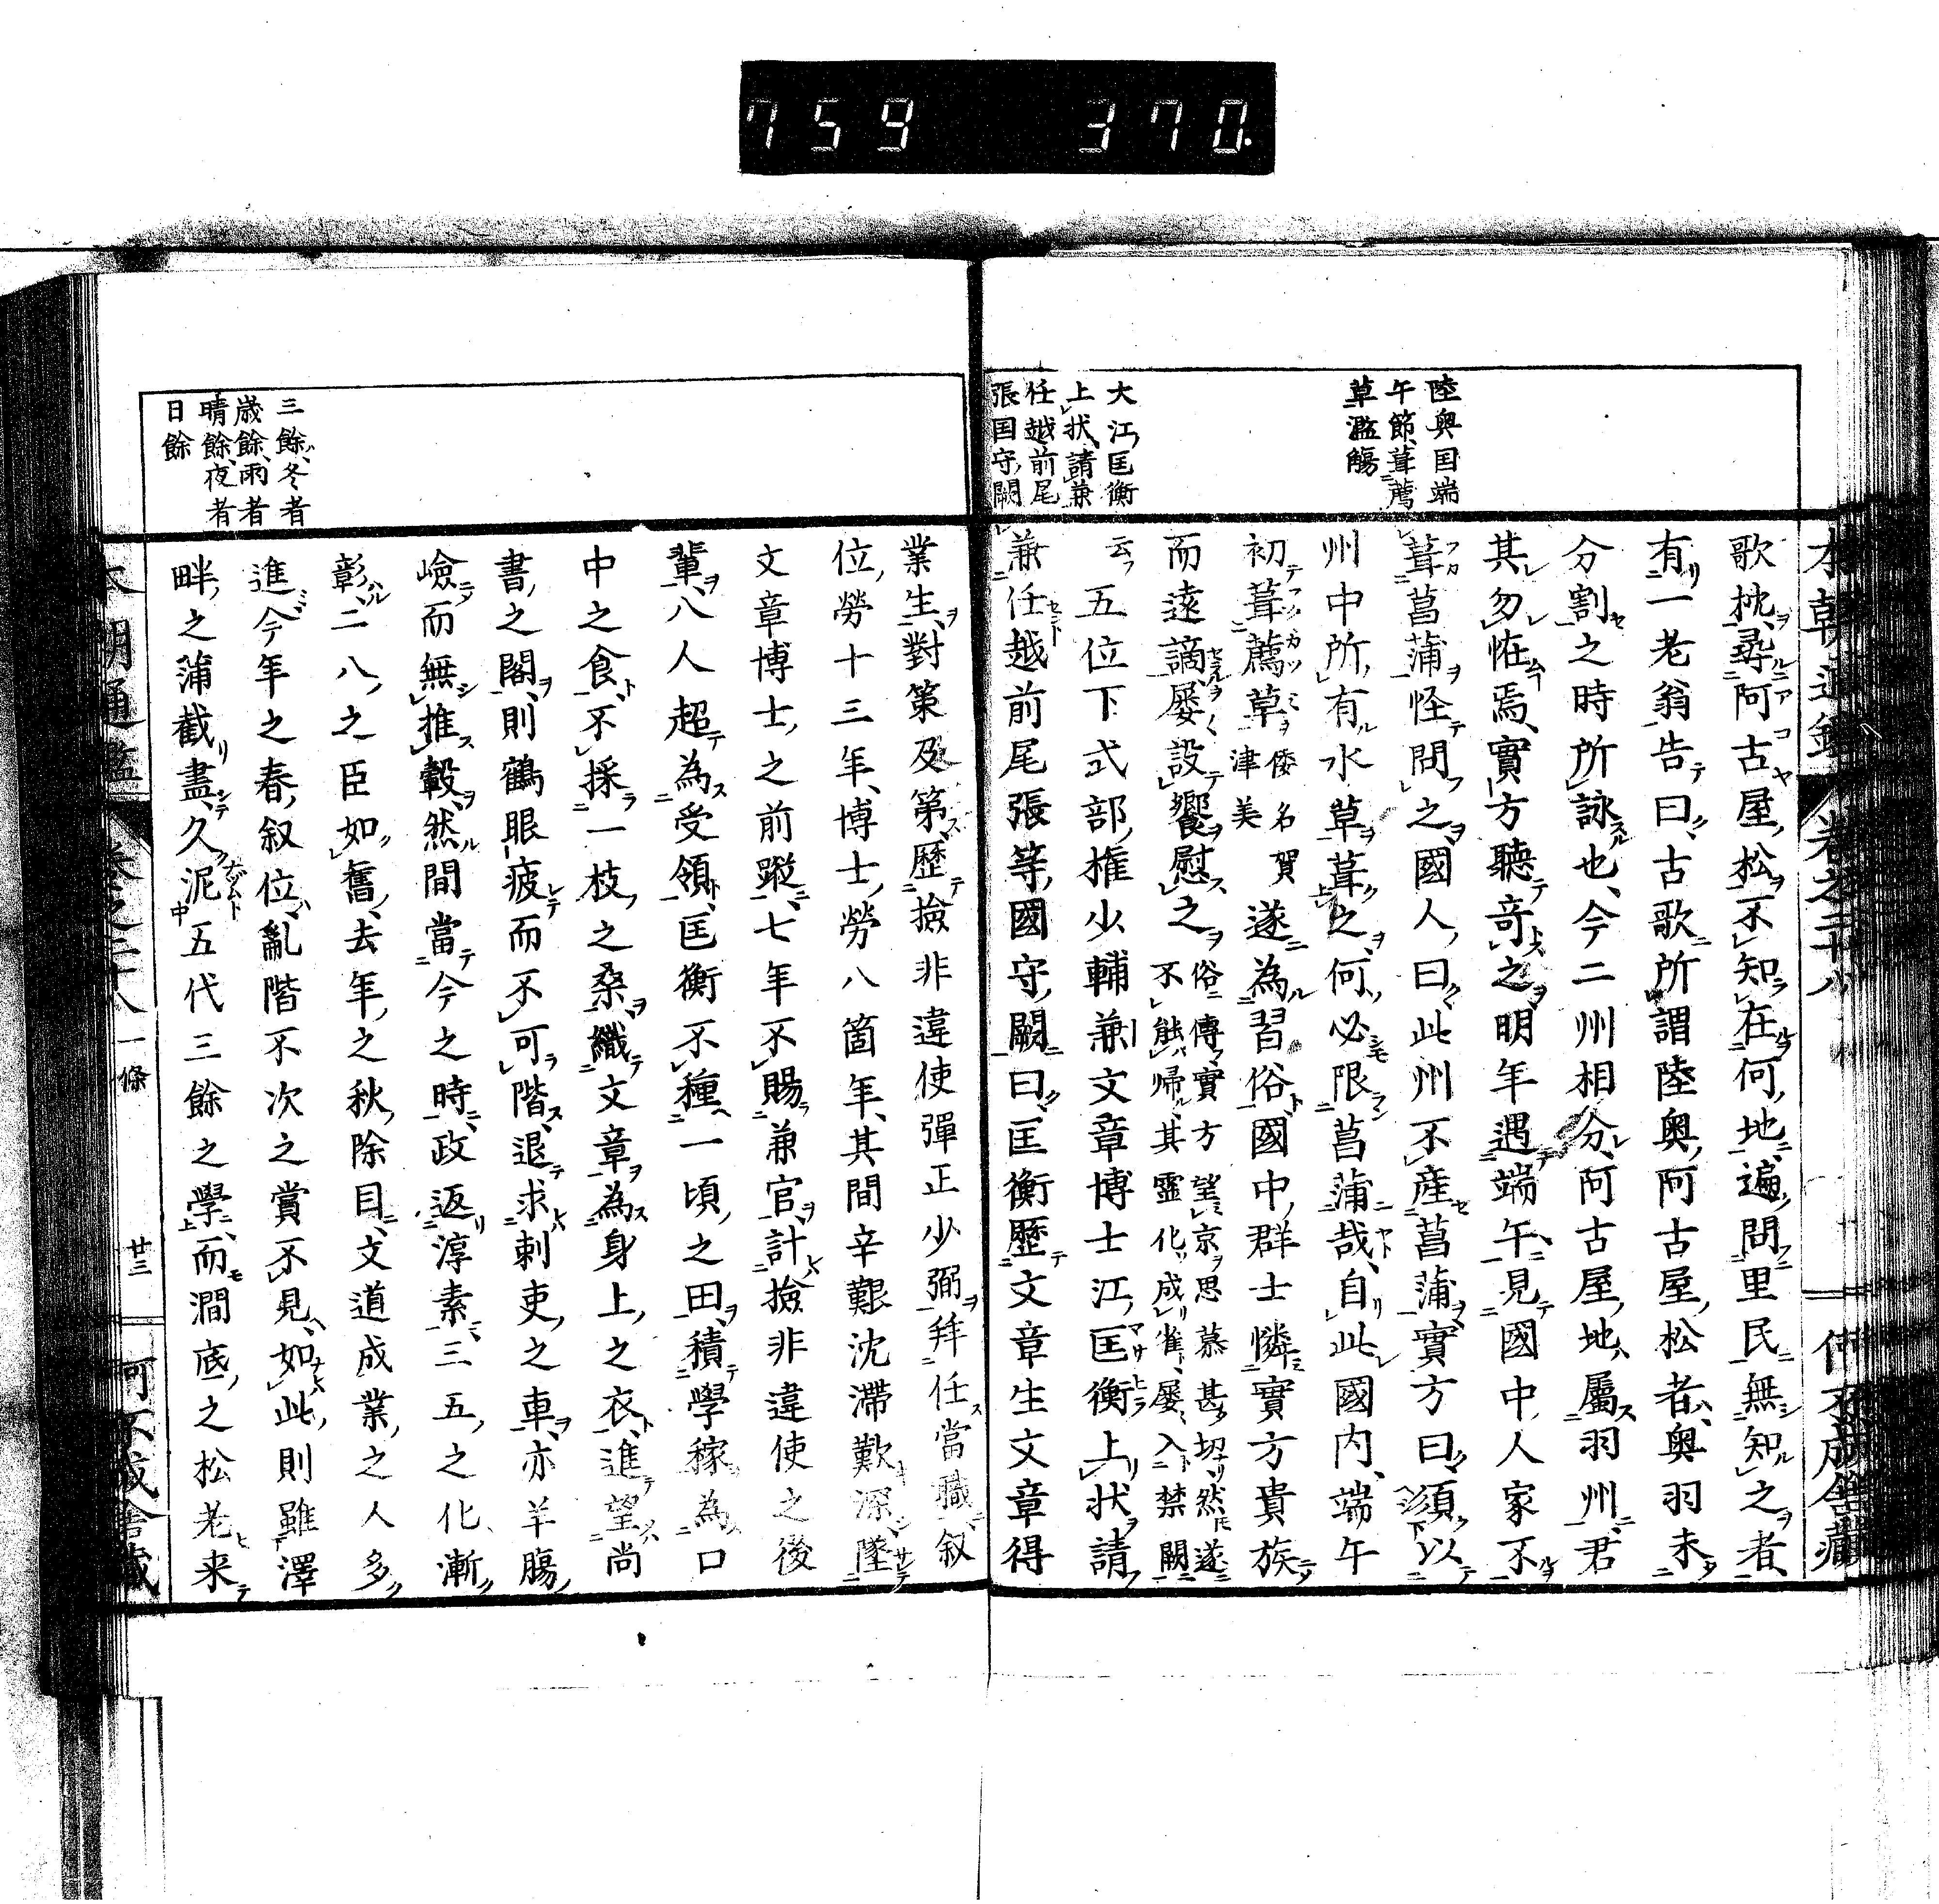 759 370.
陸奥国端
午節、葺薦
草濫觴
大江匡衡
上状、請兼
任越前尾
張国守、闕
歌枕、尋阿古屋、松不知在何、地、遍、問里民無知之者、
有一老翁告曰、古歌所謂陸奥、阿古屋、松者、奥羽未
分割之時所詠也、今二州相分、阿古屋、地、屬羽州、君
其勿恠焉、實方聽奇之、明年遇端午、見國中人家不
葺菖蒲怪問之、國人、曰、此州不產菖蒲、實方曰、須以
州中所、有水草葺之、何、必限菖蒲哉、自此國内、端午
初葺薦草倭名賀津美遂為習俗、國中、群士憐實方貴族
而遠謫、屡設饗慰之俗傳、實方望京思慕甚切、然遂
不能帰、其靈化成雀、屡入禁闕
云五位下式部、権少輔兼文章博士江、匡衡上状請、
兼任越前尾張等、國守、闕曰、匡衡歷文章生文章得
業生、對策及第、歷撿非違使彈正少弼、拜任當職、叙
位、勞十三年、博士、勞八箇年、其間辛艱沈滯歎深、墜
文章博士、之前蹤、七年不賜兼官、計撿非違使之後
輩、八人超為受領、匡衡不種一頃、之田、積學稼為口
中之食、不採一枝、之桑、織文章為身上、之衣、進望尚
書、之閣、則鶴眼疲而不可階、退求刺吏、之車、亦羊腸、
嶮而無推轂、然間當今之時、政返淳素、三五、之化、漸
彰、二八、之臣如舊、去年、之秋、除目、文道成業、之人多
進、今年之春、叙位、亂階不次之賞不見、如此、則雖澤
畔、之蒲截盡、久泥五代三餘之學、而澗底、之松老来
三餘、冬者
歳餘、雨者
晴餘、夜者
日餘
本朝通鑑 卷之二十八 一條 廿三